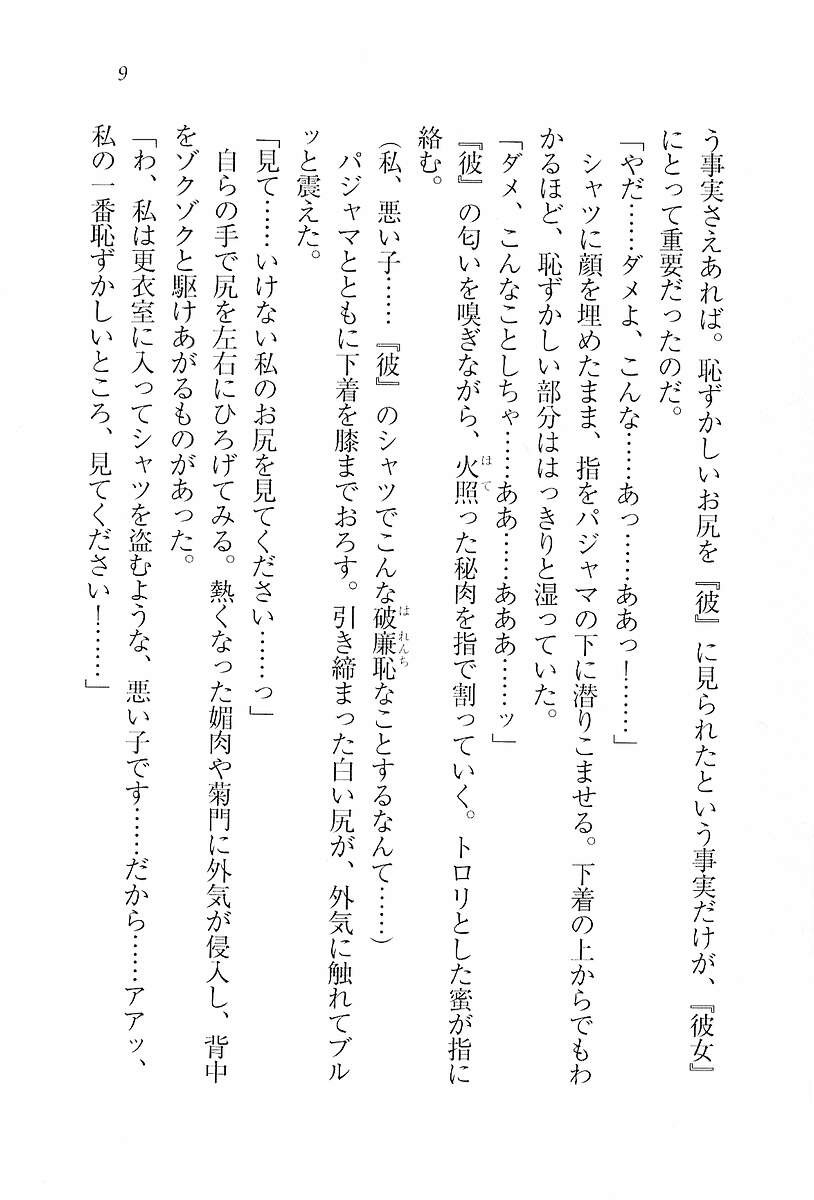 9
う事実さえあれば。恥ずかしいお尻を『彼』に見られたという事実だけが、『彼女』
にとって重要だったのだ。
「やだ……ダメよ、こんな……あっ……ああっ！……」
シャツに顔を埋めたまま、指をパジャマの下に潜りこませる。下着の上からでもわ
かるほど、恥ずかしい部分ははっきりと湿っていた。
「ダメ、こんなことしちゃ……ああ……あああ……ッ」
『彼』の匂いを嗅ぎながら、火照った秘肉を指で割っていく。トロリとした蜜が指に
絡む。
（私、悪い子……『彼』のシャツでこんな破廉恥なことするなんて……）
パジャマとともに下着を膝までおろす。引き締まった白い尻が、外気に触れてブル
ッと震えた。
「見て……いけない私のお尻を見てください……っ」
自らの手で尻を左右にひろげてみる。熱くなった媚肉や菊門に外気が侵入し、背中
をゾクゾクと駆けあがるものがあった。
「わ、私は更衣室に入ってシャツを盗むような、悪い子です……だから……アアッ、
私の一番恥ずかしいところ、見てください！……」